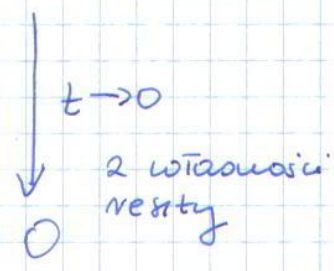 t → 0
z własności
reszty
0